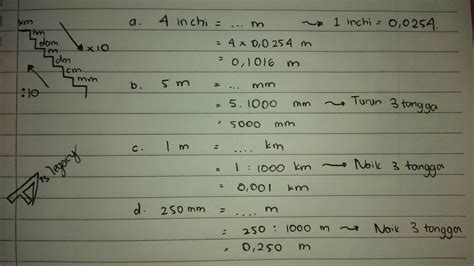 km
hm
dam
m
dm
cm
mm
x10
:10
a. 4 inchi = ... m → 1 inchi = 0,0254
= 4 x 0,0254 m
= 0,1016 m
b. 5 m = ... mm
= 5.1000 mm → Turun 3 tangga
= 5000 mm
c. 1 m = .... km
= 1 : 1000 km → Naik 3 tangga
= 0,001 km
d. 250 mm = .... m
= 250 : 1000 m → Naik 3 tangga
= 0,250 m
legacy